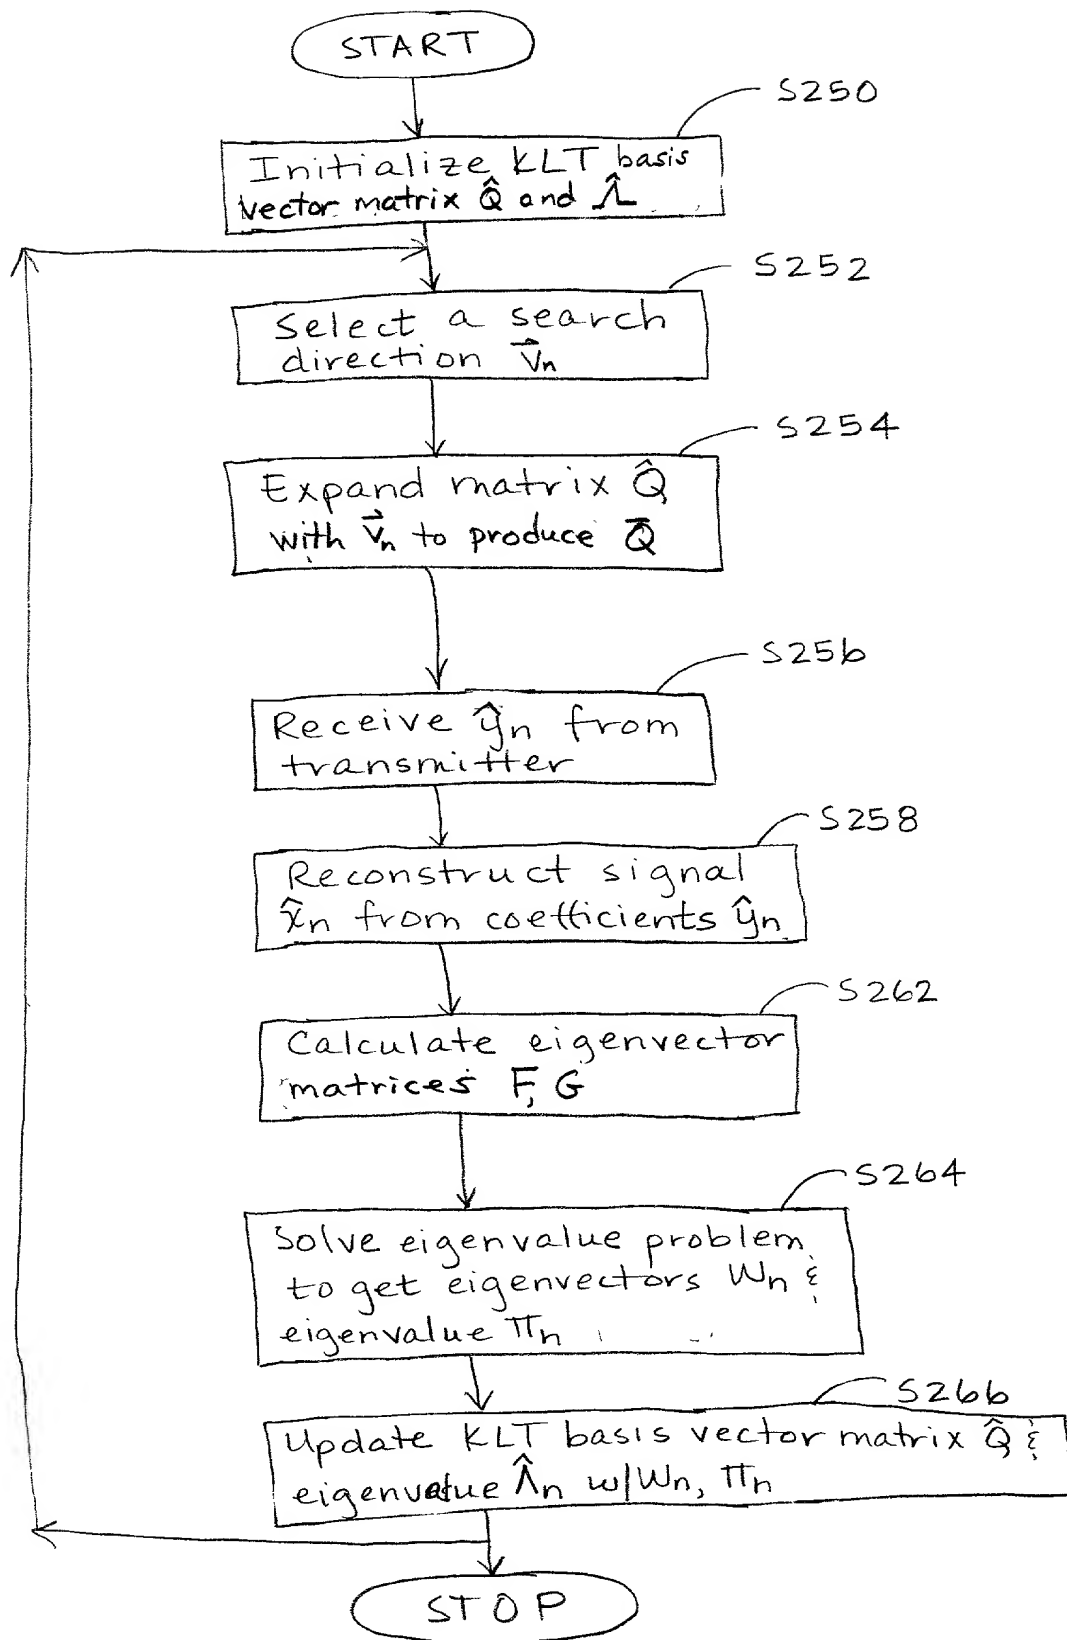 START
S250
Initialize KLT basis
vector matrix Q̂ and Λ̂
S252
Select a search
direction v⃗n
S254
Expand matrix Q̂
with v⃗n to produce Q̄
S256
Receive ŷn from
transmitter
S258
Reconstruct signal
x̂n from coefficients ŷn
S262
Calculate eigenvector
matrices F, G
S264
Solve eigenvalue problem
to get eigenvectors Wn &
eigenvalue Πn
S266
Update KLT basis vector matrix Q̂ &
eigenvalue Λ̂n w/Wn, Πn
STOP